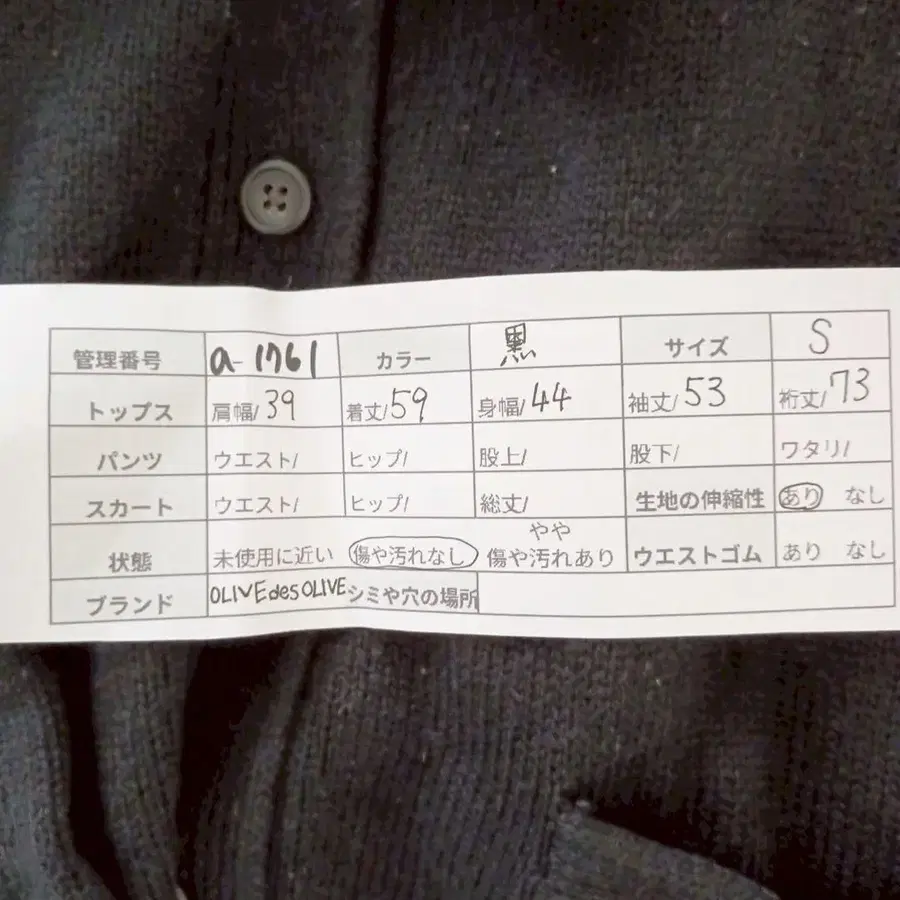 管理番号 a-1761 カラー 黒 サイズ S
トップス 肩幅/39 着丈/59 身幅/44 袖丈/53 裄丈/73
パンツ ウエスト/ ヒップ/ 股上/ 股下/ ワタリ/
スカート ウエスト/ ヒップ/ 総丈/ 生地の伸縮性 あり なし
やや
状態 未使用に近い 傷や汚れなし 傷や汚れあり ウエストゴム あり なし
ブランド OLIVEdesOLIVE シミや穴の場所